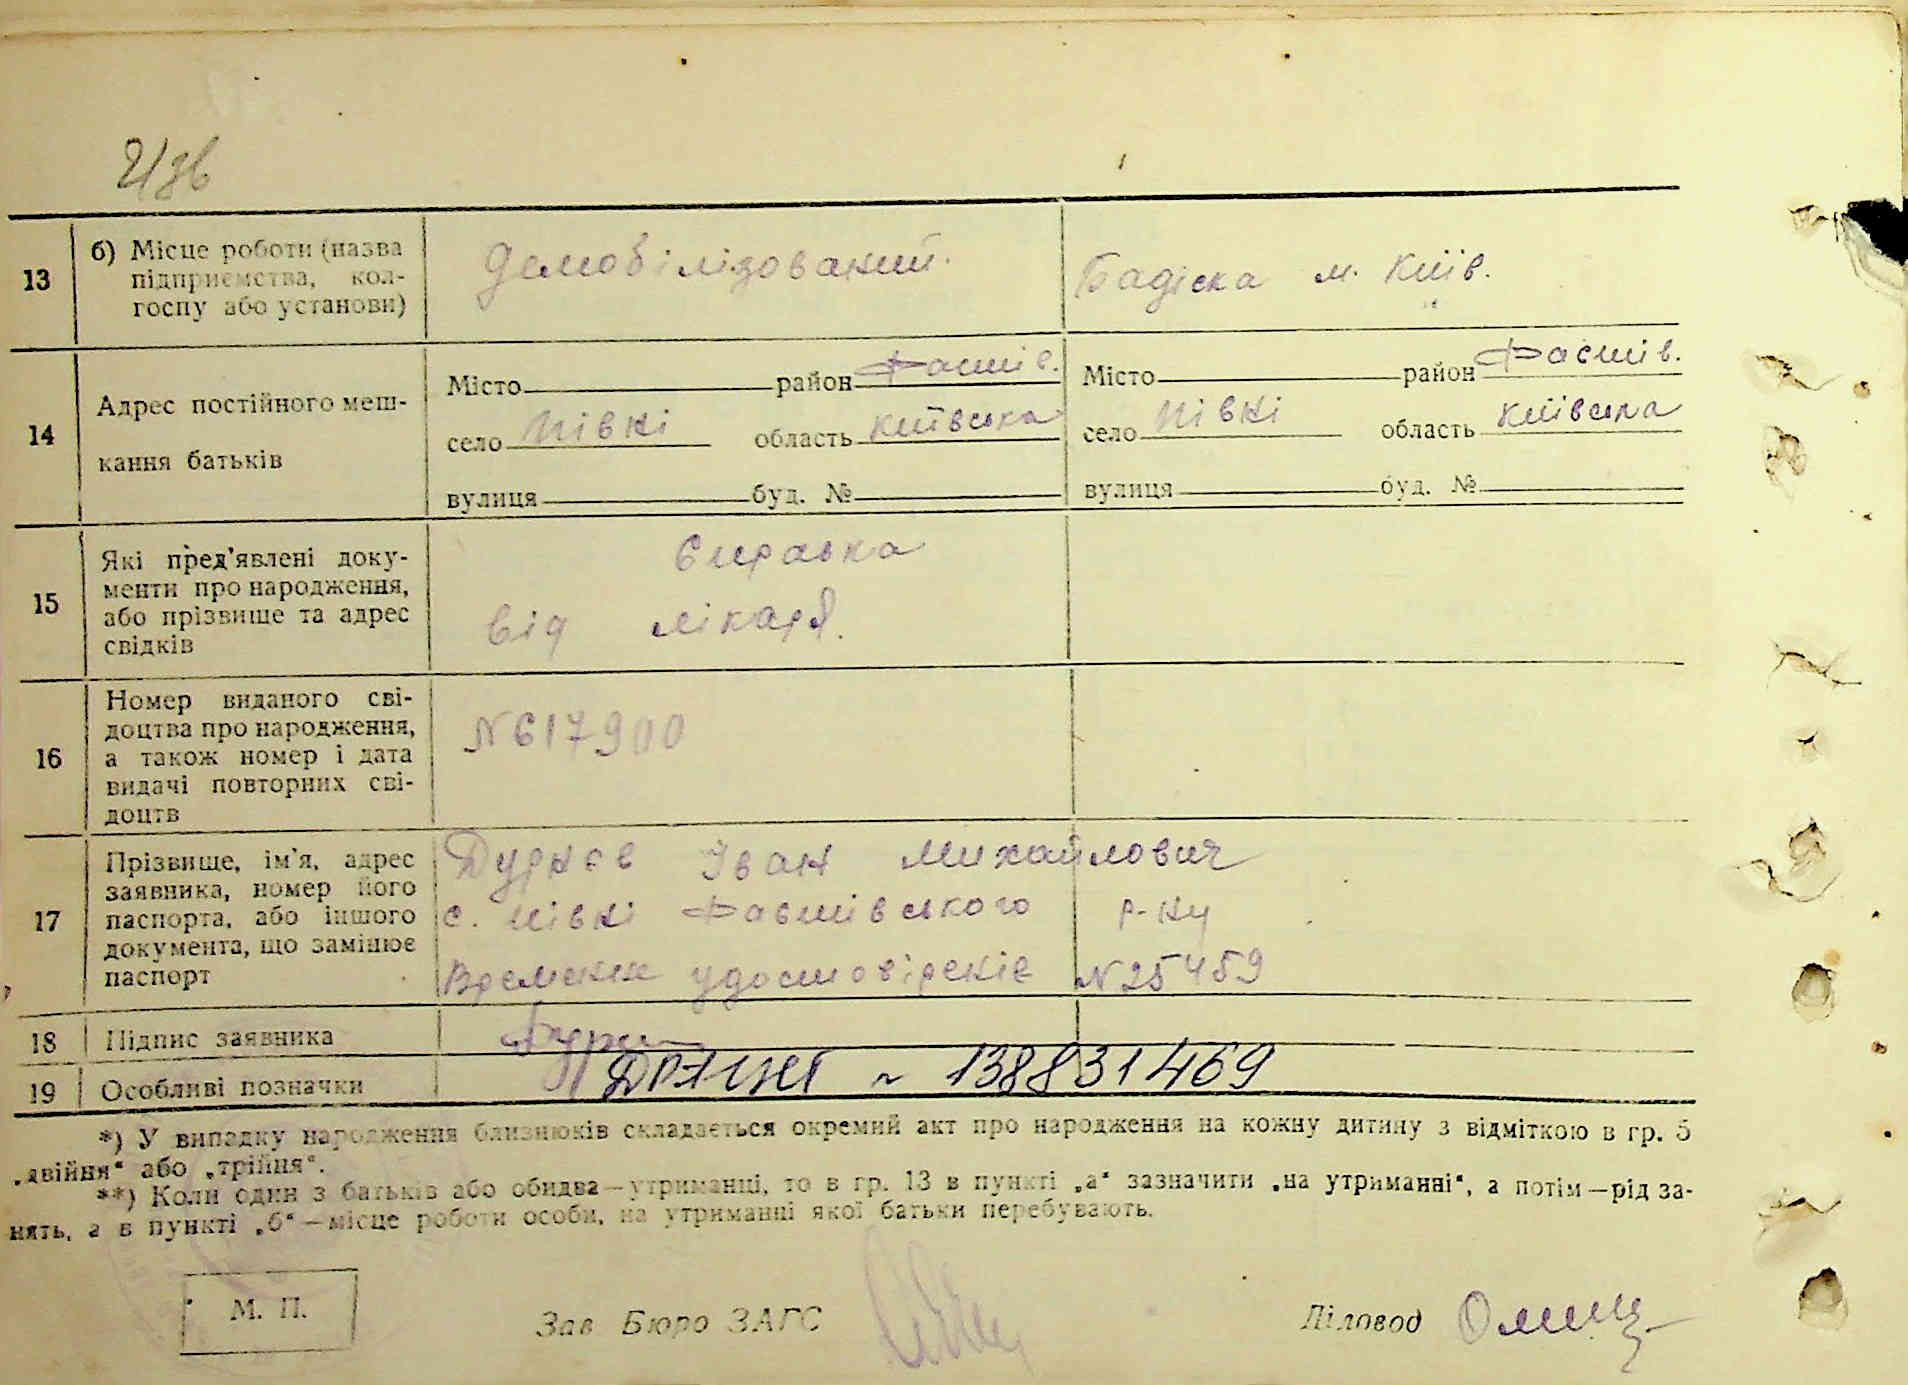 13 б) Місце роботи (назва
підприємства, кол-
госпу або установи)
Демобілізований.
м. Київ.
14 Адрес постійного меш-
кання батьків
Місто район Фастів.
село Півні область Київська
вулиця буд. №
Місто район Фастів.
село Півні область Київська
вулиця буд. №
15 Які пред’явлені доку-
менти про народження,
або прізвище та адрес
свідків
Справка
від лікаря.
16 Номер виданого сві-
доцтва про народження,
а також номер і дата
видачі повторних сві-
доцтв
N 617900
17 Прізвище, ім’я, адрес
заявника, номер його
паспорта, або іншого
документа, що замінює
паспорт
Іван Михайлович
с. Півні Фастівського р-ну
N 25459
18 Підпис заявника
19 Особливі позначки
138831469
*) У випадку народження близнюків складається окремий акт про народження на кожну дитину з відміткою в гр. 5
„двійня“ або „трійня“.
**) Коли один з батьків або обидва—утриманці, то в гр. 13 в пункті „а“ зазначити „на утриманні“, а потім—рід за-
нять, а в пункті „б“—місце роботи особи, на утриманці якої батьки перебувають.
М. П.
Зав Бюро ЗАГС
Діловод